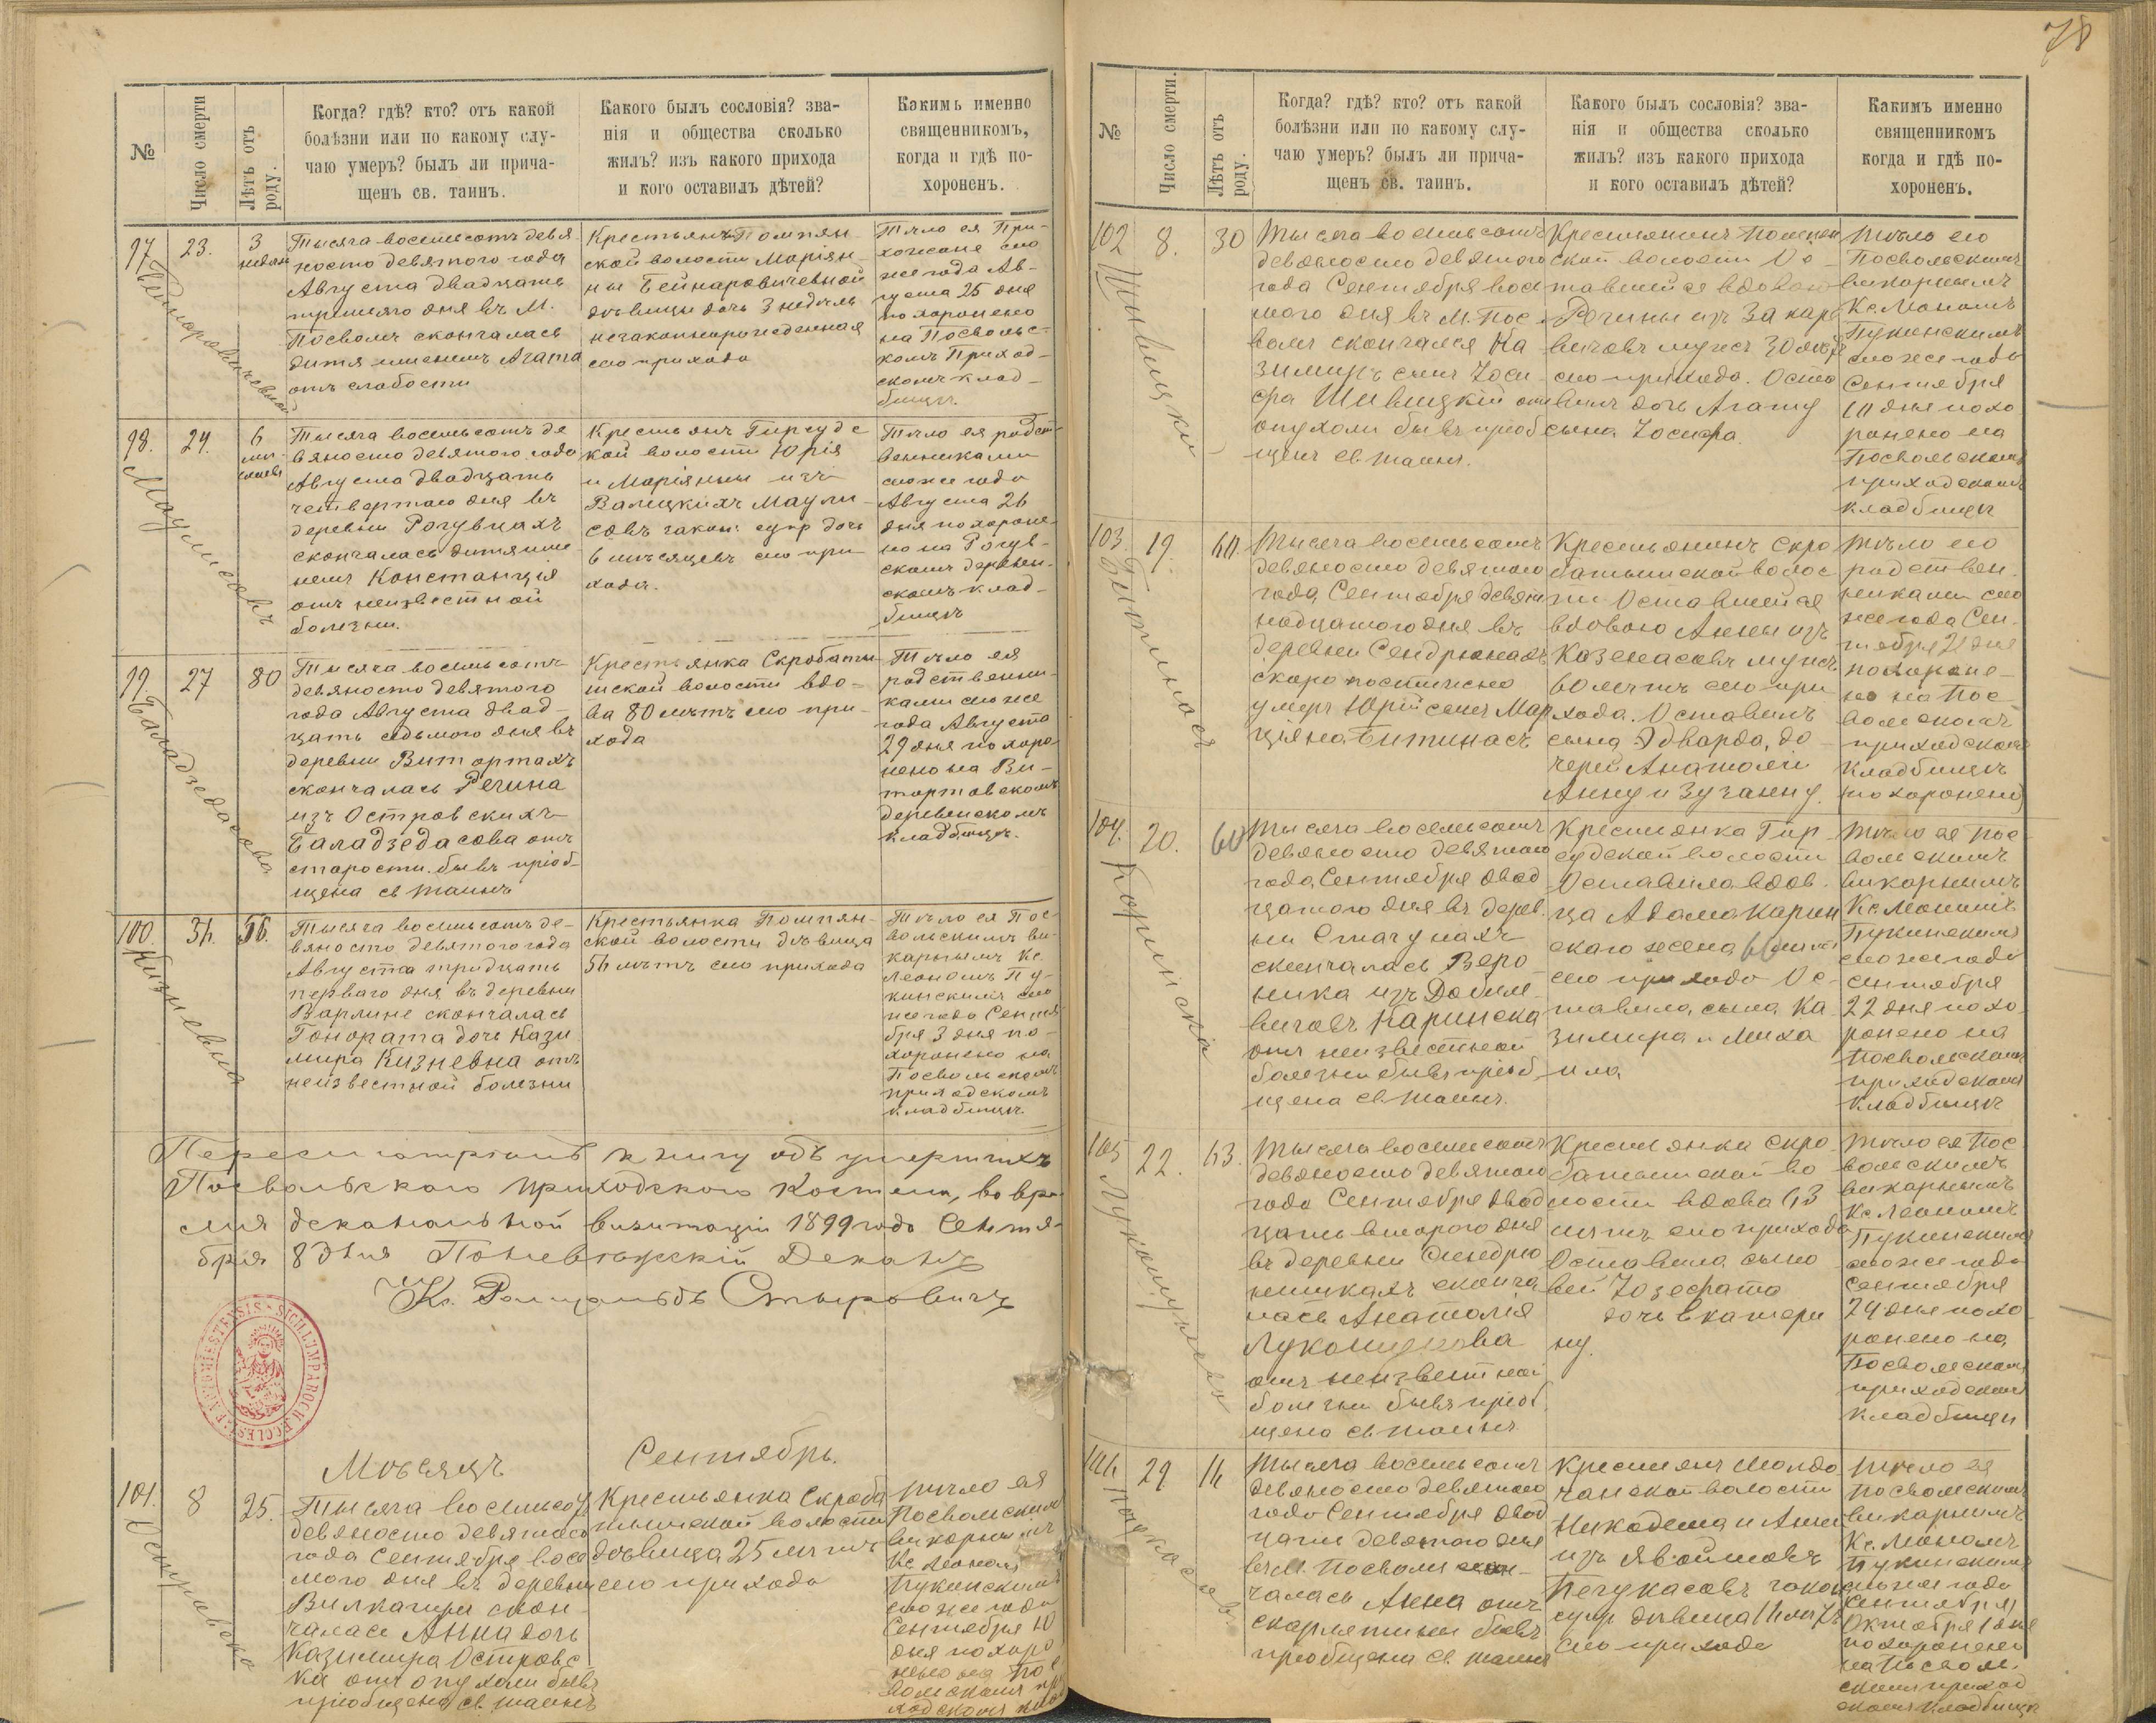 78
№
Число смерти
Лѣтъ отъ роду.
Когда? гдѣ? кто? отъ какой
болѣзни или по какому слу-
чаю умеръ? былъ ли прича-
щенъ св. таинъ.
Какого былъ сословія? зва-
нія и общества сколько
жилъ? изъ какого прихода
и кого оставилъ дѣтей?
Какимъ именно
священникомъ,
когда и гдѣ по-
хороненъ.
97
23.
3
недѣли
Тысяча восемьсотъ девя
носто девятого года
Августа двадцать
третьяго дня въ М.
Посволѣ скончалась
дитя именемъ Агата
отъ слабости
Крестьянъ Помпян-
ской волости Маріян-
ны Бейнаровичевной
дѣвицы дочь 3 недѣль
незаконнорожденная
сего прихода
Тѣло ея При-
хожане сего
же года Ав-
густа 25 дня
похоронено
на Посволь-
комъ Приход-
скомъ клад-
бищѣ.
98.
24.
6
Маулисовъ
Тысяча восемьсотъ де
вяносто девятого года
Августа двадцать
четвертого дня въ
деревни Рагувцахъ
скончалась дитя име
немъ Констанція
отъ неизвестной
болезни.
Крестьянъ Гирсудс
кой волости Юрія
и Маріянны изъ
Валицкихъ Маули-
совъ закон: супр дочь
6 мѣсяцевъ сего при
хода.
Тѣло ея родст-
венниками
сего же года
Августа 26
дня похороне-
но на Рагув-
скомъ деревен-
скомъ клад-
бищѣ
99
27
80
Баладзедасова
Тысяча восемьсотъ
девяносто девятого
года Августа двад-
цать седьмого дня въ
деревни Витортахъ
скончалась Регина
изъ Островскихъ
Баладзедасова отъ
старости. бывъ пріоб-
щена св таинъ
Крестьянка Скробаты
шской волости вдо-
ва 80 лѣтъ сего при-
хода
Тѣло ея
родственни-
ками сего же
года Августа
29 дня похоро-
нено на Ви-
тортовскомъ
деревенскомъ
кладбищѣ.
100.
31.
56.
Кизневна
Тысяча восемьсотъ де-
вяносто девятого года
Августа тридцать
перваго дня въ деревни
Варлине скончалась
Гонората дочь Кази
мира Кизневна отъ
неизвестной болезни
Крестьянка Помпян-
ской волости дѣвица
56 лѣтъ сего прихода
Тѣло ея Пос-
вольскимъ ви-
карнымъ Кс.
Леономъ Пу-
кинскимъ сего
же года Сентя-
бря 3 дня по-
хоронено на
Посвольскомъ
приходскомъ
кладбищѣ.
Пересмотрѣлъ книгу объ умершихъ
Посвольскаго Приходскаго Костела, во вре-
мя деканальной визитаціи 1899 года Сентя-
бря 8 дня Поневѣжскій Деканъ
Кс. Ромуальдъ Стыровичъ
Мѣсяцъ Сентябрь.
101.
8
25.
Островска
Тысяча восемьсотъ
девяносто девятого
года Сентября вось
мого дня въ деревни
Вилкагири скон
чалась Анна дочь
Казимира Островс
ка отъ опухоли бывъ
пріобщена св. таинъ
Крестьянка Скроба
тышской волости
дѣвица 25 лѣтъ
сего прихода
Тѣло ея
Посвольскимъ
викарнымъ
Кс. Леономъ
Пукинскимъ
сего же года
Сентября 10
дня похоро
нено на Пос
вольскомъ при
ходскомъ клад
№
Число смерти.
Лѣтъ отъ роду.
Когда? гдѣ? кто? отъ какой
болѣзни или по какому слу-
чаю умеръ? былъ ли прича-
щенъ св. таинъ.
Какого былъ сословія? зва-
нія и общества сколько
жилъ? изъ какого прихода
и кого оставилъ дѣтей?
Какимъ именно
священникомъ
когда и гдѣ по-
хороненъ.
102
8.
30
Шивицкій
Тысяча восемьсотъ
девяносто девятого
года Сентября вось
мого дня въ М. Пос-
волѣ скончался Ка
зимиръ сынъ Іоси
фа Шивицкій отъ
опухоли бывъ пріоб
щенъ св. таинъ.
Крестьянинъ Помпян
ской волости Ос-
тавшейся вдовою
Регины изъ Захаре
вичовъ мужъ 30 лѣтъ
сего прихода. Оста
вилъ дочь Агату
сына Іосифа.
Тѣло его
Посвольскимъ
викарнымъ
Кс. Леономъ
Пукинскимъ
сего же года
Сентября
10 дня похо
ронено на
Посвольскомъ
приходскомъ
кладбищѣ
103
19.
60.
Битинасъ
Тысяча восемьсотъ
девяносто девятого
года Сентября девят
надцатого дня въ
деревни Сендрюнахъ
скоропостижно
умеръ Юрій сынъ Мар
ціяна Битинасъ
Крестьянинъ Скро
батышской волос
ти Оставшейся
вдовою Анны изъ
Казенасовъ мужъ
60 лѣтъ сего при
хода. Оставилъ
сына Эдварда, до
черей Анатолію
Анну и Зузанну.
Тѣло его
родствен
никами сего
же года Сен-
тября 21 дня
похороне-
но на Пос
вольскомъ
приходскомъ
кладбищѣ
похоронено
104.
20.
60
Каринска
Тысяча восемьсотъ
девяносто девятого
года Сентября двад
цатого дня въ дерев.
ни Смагунахъ
скончалась Веро
ника изъ Довиле-
вичовъ Каринска
отъ неизвестной
болезни бывъ пріоб
щена св. таинъ.
Крестьянка Гир-
судской волости
Оставила вдов-
ца Адама Карин
скаго жена 60 лѣтъ
сего прихода Ос-
тавила сына Ка
зимира и Миха
ила
Тѣло ея Пос
вольскимъ
викарнымъ
Кс. Леономъ
Пукинскимъ
сего же года
Сентября
22 дня похо
ронено на
Посвольскомъ
приходскомъ
кладбищѣ
105
22.
63.
Тысяча восемьсотъ
девяносто девятого
года Сентября двад
цать второго дня
въ деревни Сендрю
нишкахъ сконча
лась Анатолія
отъ неизвестной
болезни бывъ пріоб
щена св. таинъ
Крестьянка Скро
батышской во
лости вдова 63
лѣтъ сего прихода
Оставила сыно
вей Іозефата
дочь Екатери
ну.
Тѣло ея Пос
вольскимъ
викарнымъ
Кс. Леономъ
Пукинскимъ
сего же года
Сентября
24 дня похо
ронено на
Посвольскомъ
приходскомъ
кладбищѣ
106
29
16
Тысяча восемьсотъ
девяносто девятого
года Сентября двад
цать девятого дня
въ М. Посволи скон-
чалась Анна отъ
скарлатины бывъ
пріобщена св. таинъ
Крестьянъ
волости
Никодема и Анны
изъ
Печукасовъ закон
супр дѣвица 16 лѣтъ
сего прихода
Тѣло ея
Посвольскимъ
викарнымъ
Кс. Леономъ
Пукинскимъ
сего же года
Сентября
Октября 1 дня
похоронено
на Посволь.
скомъ приход
скомъ кладбищѣ